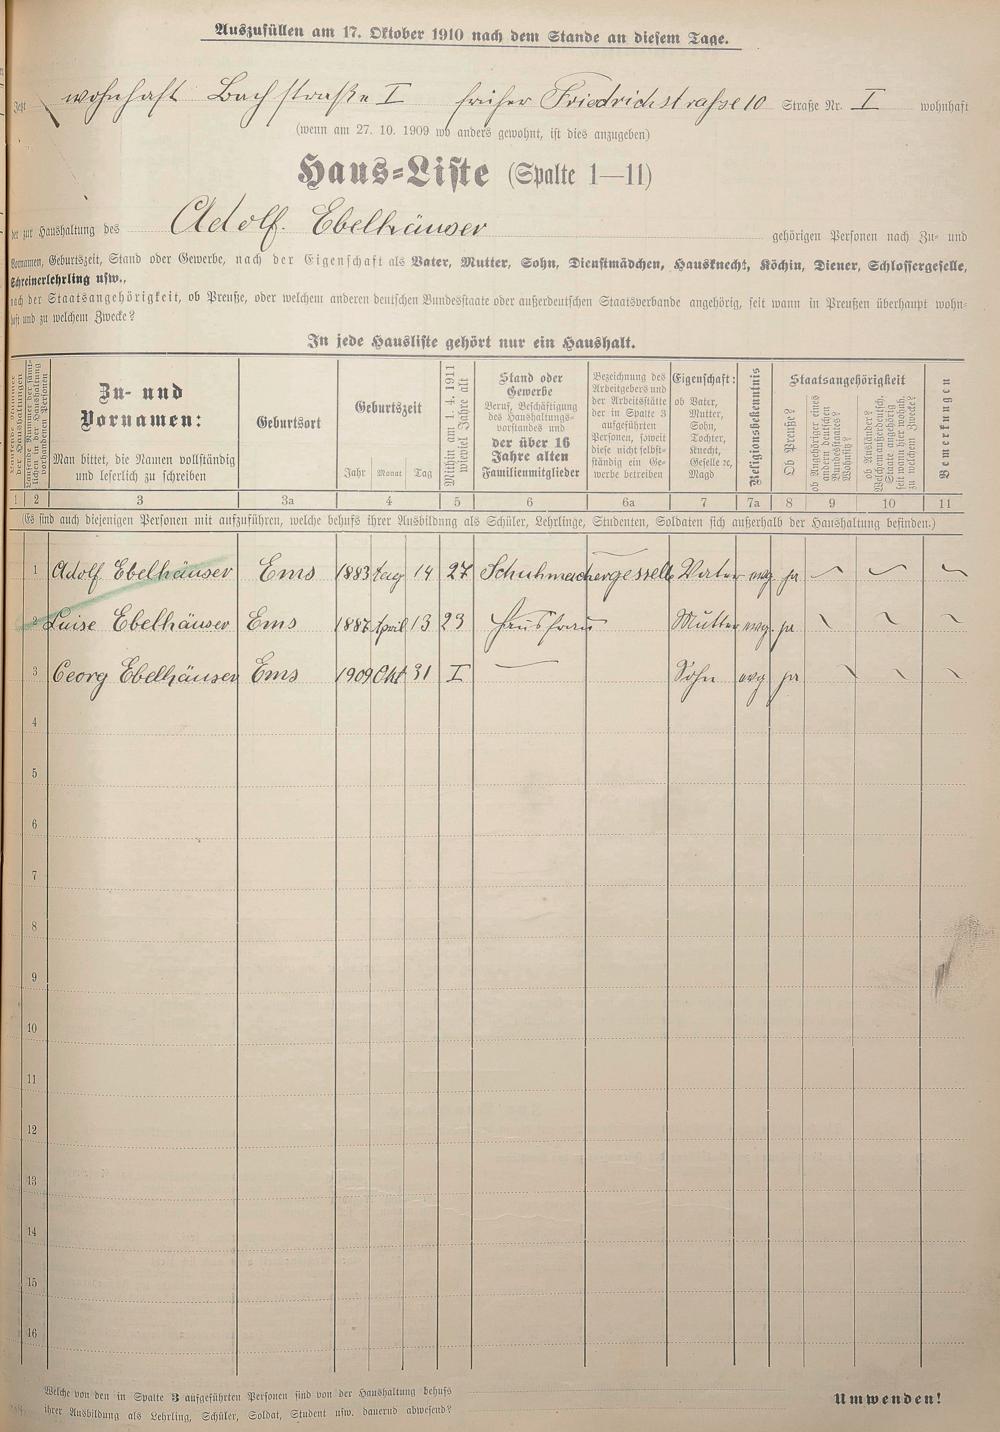 Auszufüllen am 17. Oktober 1910 nach dem Stande an diesem Tage.
Jetzt wohnhaft Bachstraße I früher Friedrichstraße 10 Straße Nr. I wohnhaft
(wenn am 27. 10. 1909 wo anders gewohnt, ist dies anzugeben)
Haus-Liste (Spalte 1—11)
der zur Haushaltung des Adolf Ebelhäuser gehörigen Personen nach Zu- und
Vornamen, Geburtszeit, Stand oder Gewerbe, nach der Eigenschaft als Vater, Mutter, Sohn, Dienstmädchen, Hausknecht, Köchin, Diener, Schlossergeselle,
Schreinerlehrling usw.,
nach der Staatsangehörigkeit, ob Preuße, oder welchem anderen deutschen Bundesstaate oder außerdeutschen Staatsverbande angehörig, seit wann in Preußen überhaupt wohn-
haft und zu welchem Zwecke?
In jede Hausliste gehört nur ein Haushalt.
Laufende Nummer der Haushaltungen
Laufende Nummer der sämtlichen in der Haushaltung vorhandenen Personen
Zu- und
Vornamen:
Man bittet, die Namen vollständig
und leserlich zu schreiben
Geburtsort
Geburtszeit
Jahr Monat Tag
Mithin am 1. 4. 1911
wieviel Jahre alt
Stand oder
Gewerbe
Beruf, Beschäftigung
des Haushaltungs-
vorstandes und
der über 16
Jahre alten
Familienmitglieder
Bezeichnung des
Arbeitgebers und
der Arbeitsstätte
der in Spalte 3
aufgeführten
Personen, soweit
diese nicht selbst-
ständig ein Ge-
werbe betreiben
Eigenschaft:
ob Vater,
Mutter,
Sohn,
Tochter,
Knecht,
Geselle ꝛc,
Magd
Religionsbekenntnis
Staatsangehörigkeit
Ob Preuße?
ob Angehöriger eines
andern deutschen
Bundesstaates?
Wohnsitz?
ob Ausländer?
Welchem außerdeutsch.
Staate angehörig
seit wann hier wohnh.
zu welchem Zwecke?
Bemerkungen
1 2 3 3a 4 5 6 6a 7 7a 8 9 10 11
(Es sind auch diejenigen Personen mit aufzuführen, welche behufs ihrer Ausbildung als Schüler, Lehrlinge, Studenten, Soldaten sich außerhalb der Haushaltung befinden.)
1 Adolf Ebelhäuser Ems 1883 14 27 Schuhmachergeselle Vater evg. ja
2 Luise Ebelhäuser Ems 1887 April 13 23 Hausfrau Mutter evg. ja
3 Georg Ebelhäuser Ems 1909 Okt 31 I — Sohn evg ja
4
5
6
7
8
9
10
11
12
13
14
15
16
Welche von den in Spalte 3 aufgeführten Personen sind von der Haushaltung behufs
ihrer Ausbildung als Lehrling, Schüler, Soldat, Student usw. dauernd abwesend?
Umwenden!